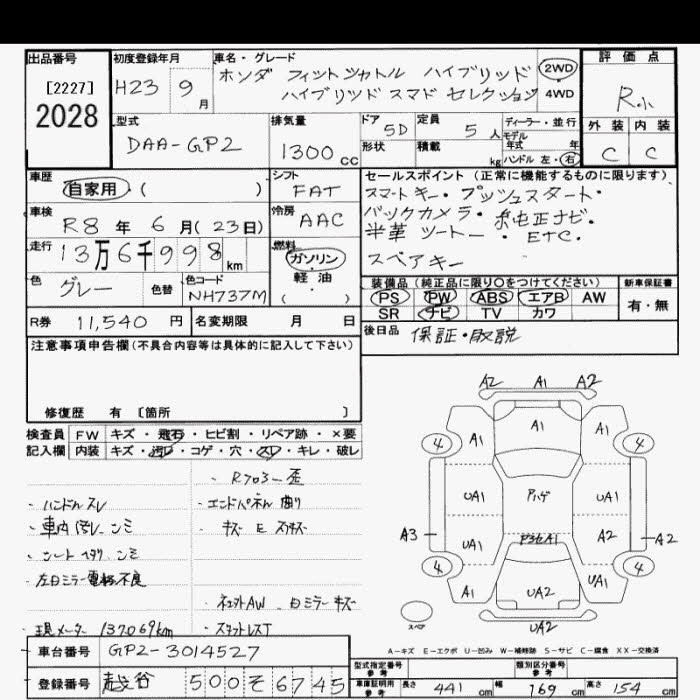 出品番号
[2227]
2028
初度登録年月
H23 9 月
車名・グレード
ホンダ フィットシャトル ハイブリッド
ハイブリッド スマートセレクション
2WD
4WD
評価点
R小
外装 内装
C C
型式
DAA-GP2
排気量
1300 cc
ドア 5D
形状
定員 5 人
積載 kg
ディーラー・並行
モデル年式 年
ハンドル 左・右
車歴
自家用・( )
シフト
FAT
車検
R8 年 6 月(23日)
冷房
AAC
走行
13万6千998 km
燃料
ガソリン
軽油
( )
色 グレー 色替
色コード
NH737M
R券 11,540 円
名変期限 月 日
セールスポイント(正常に機能するものに限ります)
スマートキー・プッシュスタート・
バックカメラ・純正ナビ・
半革シート・ETC・
スペアキー
装備品(純正品に限り○をつけてください)
PS PW ABS エアB AW
SR ナビ TV カワ
新車保証書
有・無
後日品 保証・取説
注意事項申告欄(不具合内容等は具体的に記入して下さい)
修復歴 有 〔箇所 〕
検査員記入欄
FW キズ・飛石・ヒビ割・リペア跡・×要
内装 キズ・汚レ・コゲ・穴・スレ・キレ・破レ
・ハンドルスレ
・車内汚レ、シミ
・シートヘタリ、シミ
・左ドミラー電格不良
現メーター 137069km
・エンドパネル曲り
キズ
・ドミラーキズ
A2 A1 A2
4 A1 A1 A1 4
UA1 アハゲ UA1
A3 UA1 A2 A2
4 A1 UA2 UA1 4
スペア
UA2
A-キズ E-エクボ U-凹み W-補修跡 S-サビ C-腐食 XX-交換済
車台番号 GP2-3014527
登録番号 越谷 500 そ 6745
型式指定番号
参考
類別区分番号
参考
車庫証明用
参考
長さ 441 cm 幅 169 cm 高さ 154 cm